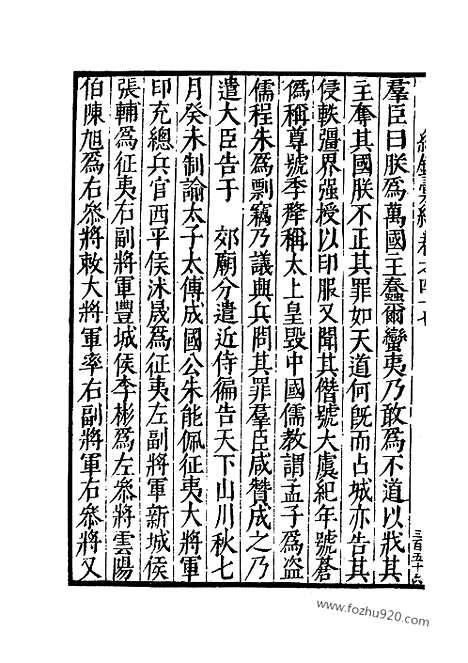 紀錄彙編卷之四十七
羣臣曰朕爲萬國王蠢爾蠻夷乃敢爲不道以戕其
主奪其國朕不正其罪如天道何旣而占城亦告其
侵軼彊界强授以印服又聞其僭號大虞紀年號蒼
僞稱尊號季犛稱太上皇毀中國儒教謂孟子爲盜
儒程朱爲剽竊乃議興兵問其罪羣臣咸贊成之乃
遣大臣告于　郊廟分遣近侍徧告天下山川秋七
月癸未制諭太子太傅成國公朱能佩征夷大將軍
印充總兵官西平侯沐晟爲征夷左副將軍新城侯
張輔爲征夷右副將軍豐城侯李彬爲左叅將雲陽
伯陳旭爲右叅將敕大將軍率右副將軍右叅將又
三百五十六
www.fozhu920.com